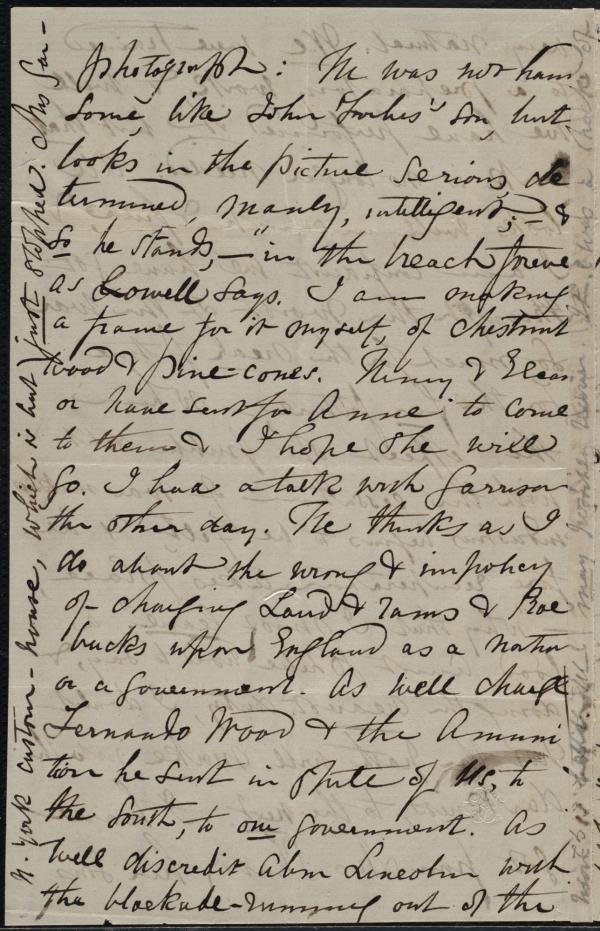 photograph: He was not hand
some, like John Forbes' son, but
looks in the picture serious, de
termined, manly, intelligent; — &
so he stands, — "in the breach foreve
as Lowell says. I am making
a frame for it myself, of chestnut
wood & pine-cones. Henry & Elean
or have sent for Anne to come
to them & I hope she will
go. I had a talk with Garrison
the other day. He thinks as I
do about the wrong & impolicy
of charging Laird & rams & Roe
bucks upon England as a nation
or a government. As well charge
Fernando Wood & the Amuni
tion he sent in spite of us, to
the South, to our government. As
well discredit Abm Lincoln with
the blockade-running out of the
N. York custom-house, which is but just stopped. Mrs Gar-